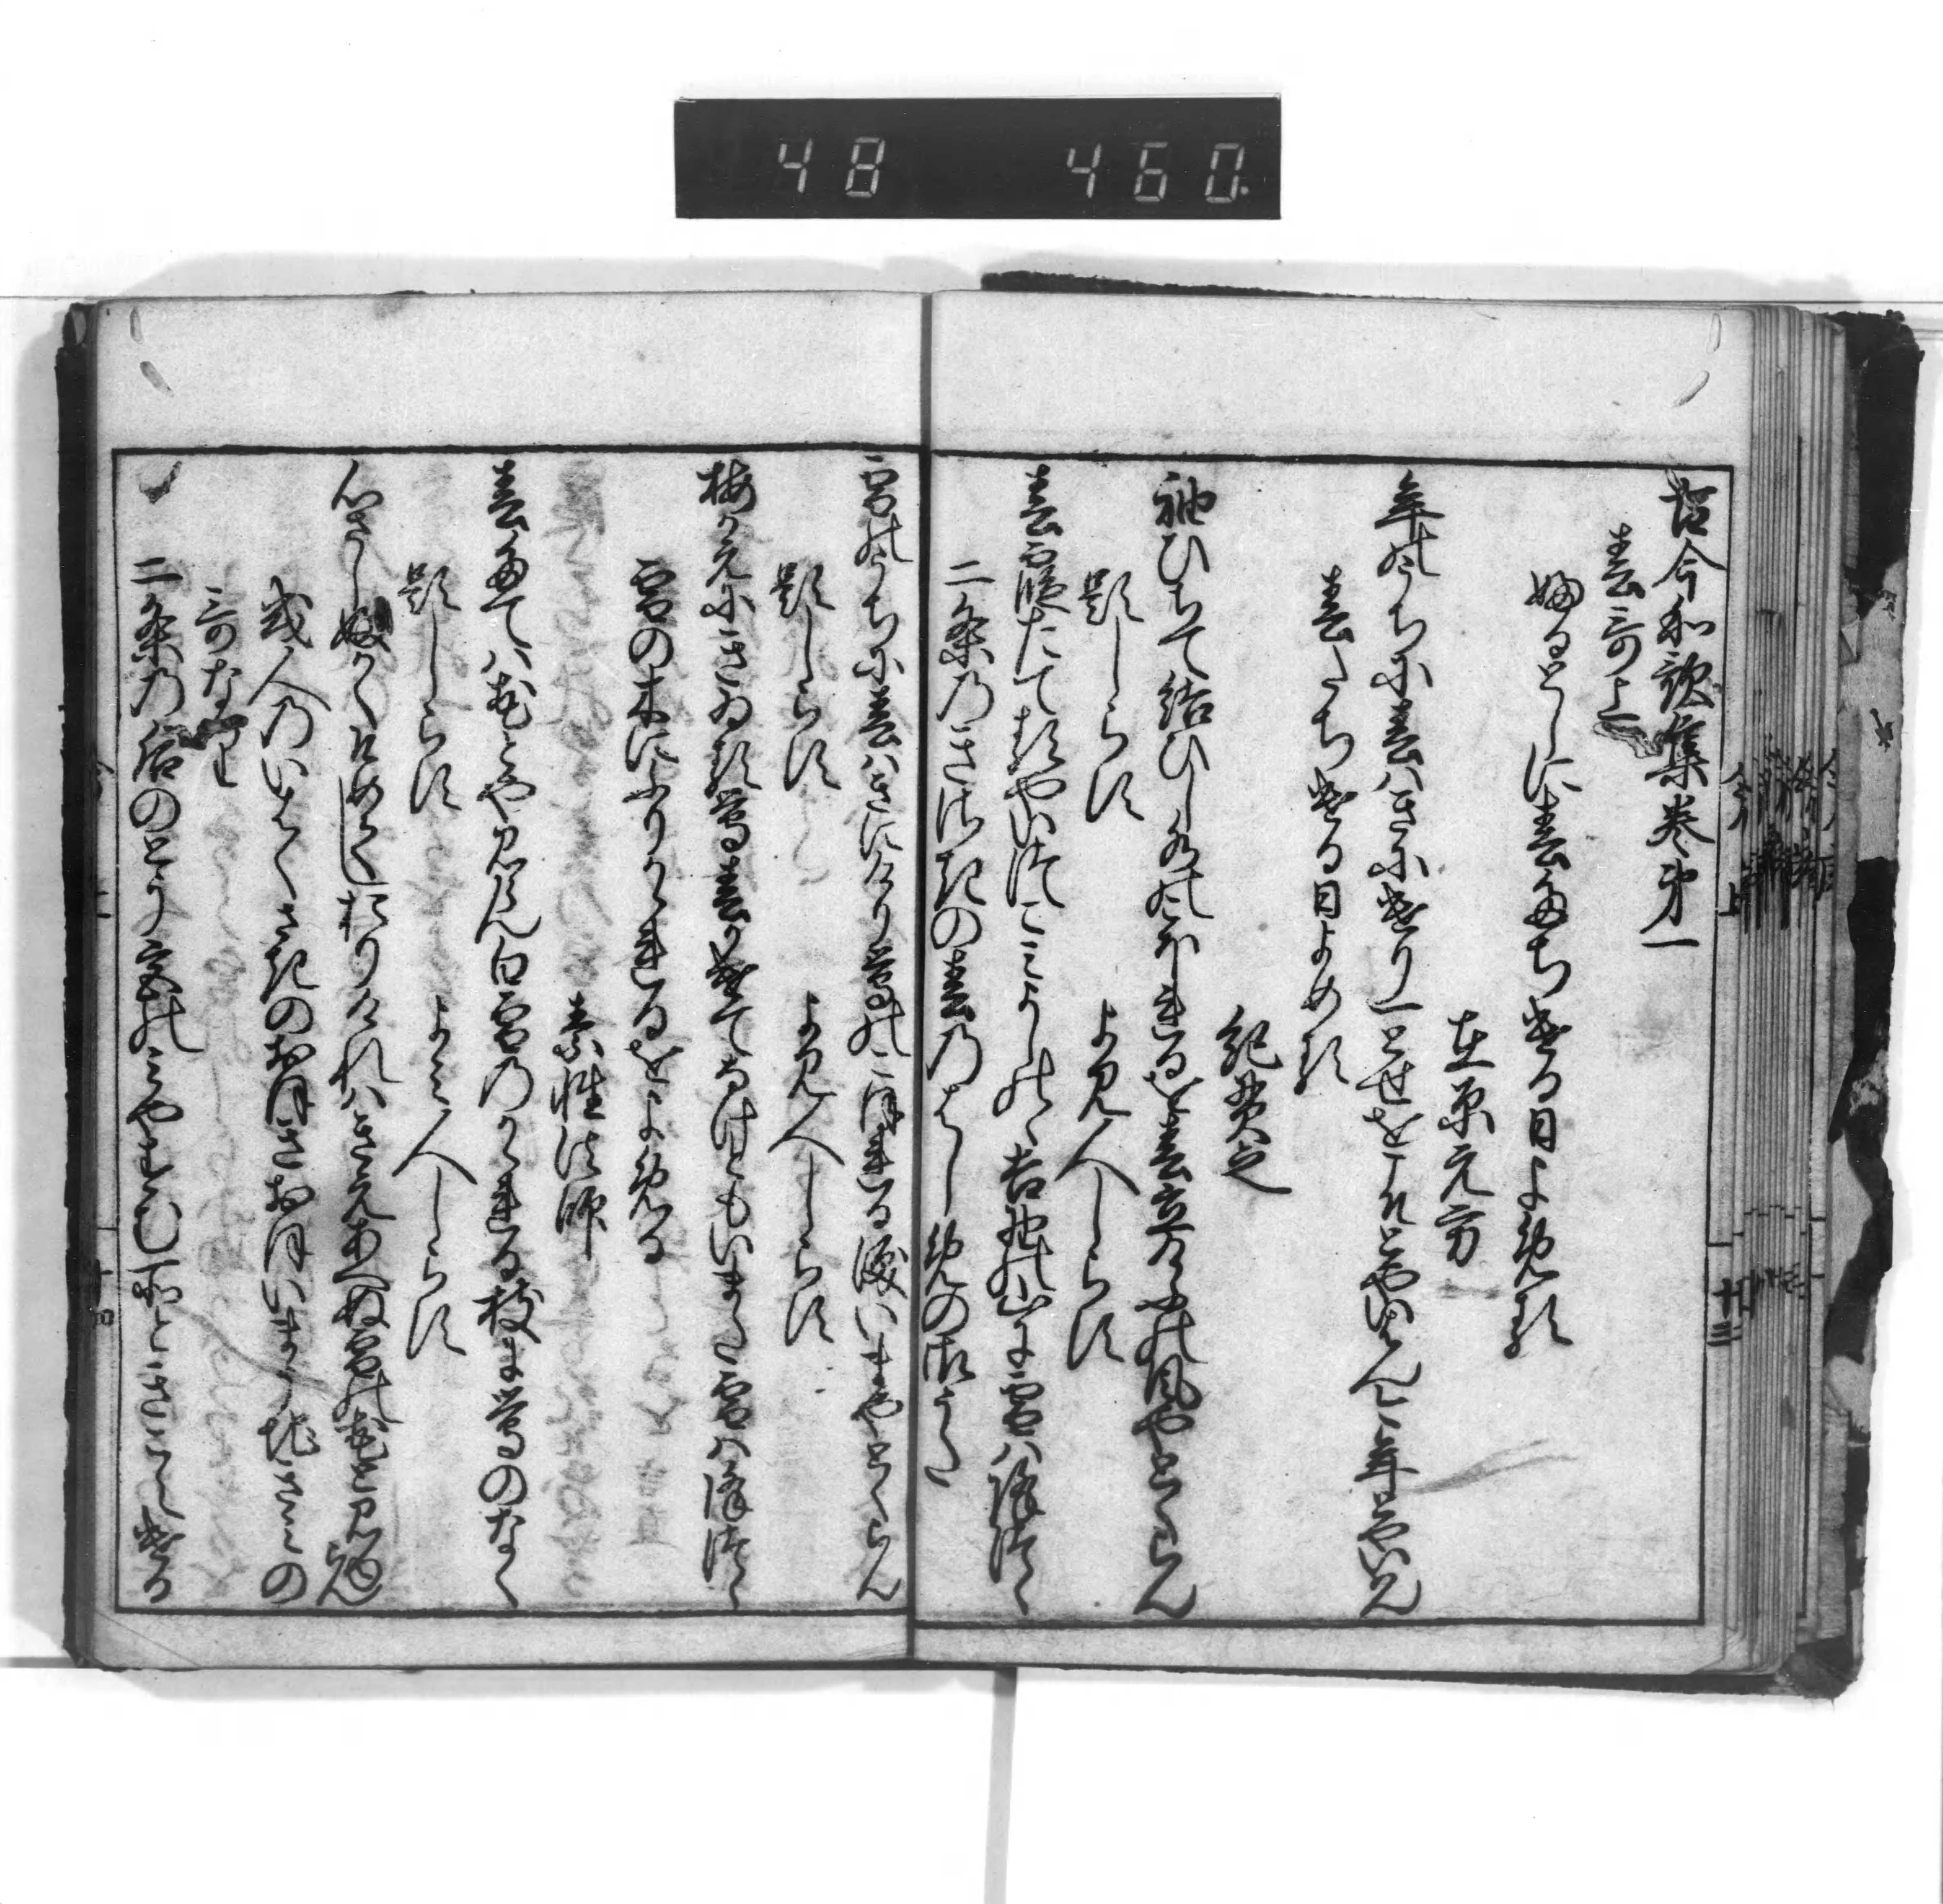 48 460
古今和歌集巻第一
春哥上
ふるとしに春たちける日よめる
在原元方
年のうちに春はきにけり一とせをこそとやいはんことし年とやいはん
春たちける日よめる
紀貫之
袖ひちて結ひし水のこほれるを春立けふの風やとくらん
題しらす
よみ人しらす
春霞たてるやいつこみよしのゝ吉野の山に雪は降つゝ
二条のきさきの春のはしめの御うた
雪のうちに春はきにけり鶯のこほれる涙いまやとくらん
題しらす
よみ人しらす
梅かえにきゐる鶯春かけてなけともいまた雪は降つゝ
雪の木にふりかゝれるをよめる
素性法師
春たては花とや見らん白雪のかゝれる枝に鶯のなく
題しらす
よみ人しらす
心さしふかくそめてしおりけれはきえあへぬ雪の花と見ゆらん
或人のいはくさきのおほきおほいまうち君の
哥なり
二条の后のとう宮のみやすむ所ときこえける
十三